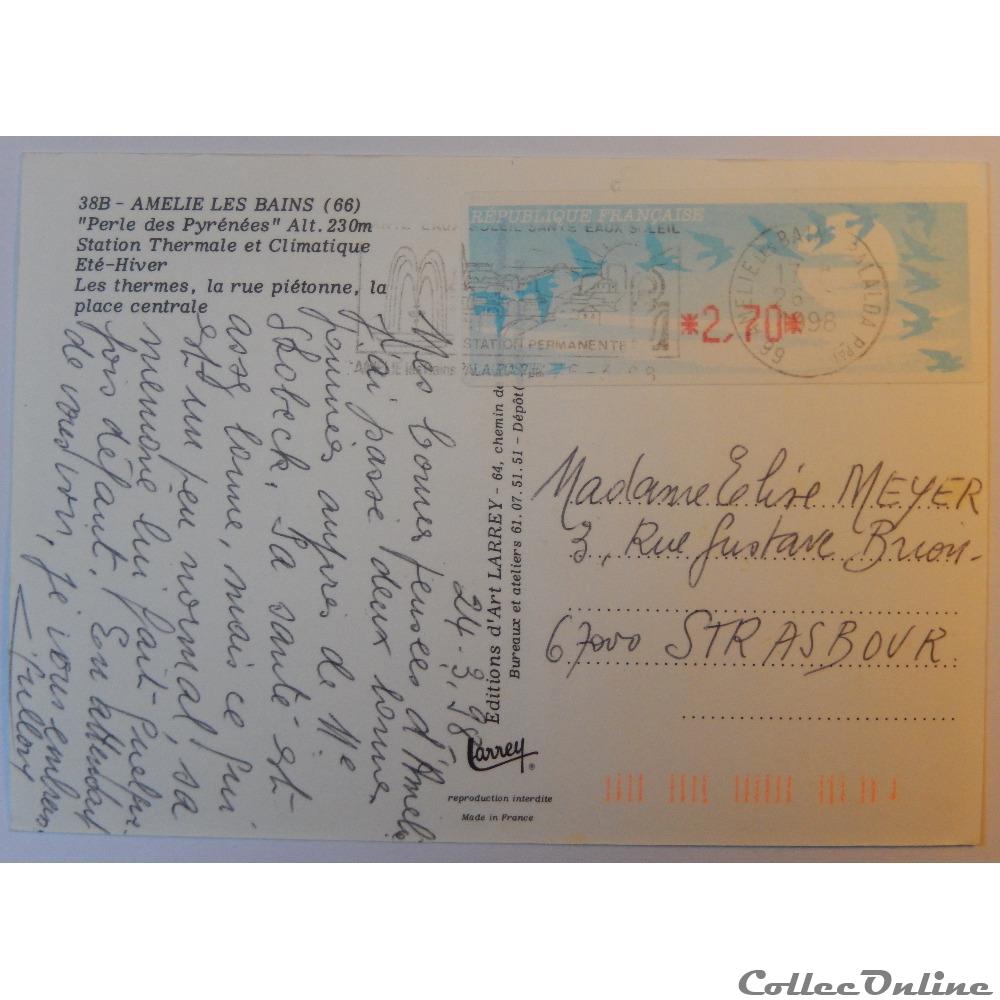 38B - AMELIE LES BAINS (66)
"Perle des Pyrénées" Alt. 230m
Station Thermale et Climatique
Eté-Hiver
Les thermes, la rue piétonne, la
place centrale
RÉPUBLIQUE FRANÇAISE
EAUX SOLEIL SANTE EAUX SOLEIL
*2,70*
STATION PERMANENTE
1998
66
24.3.98
Mes bonnes pensées d'Amélie
J'ai passé deux bonnes
journées auprès de Me
Sa santé est
assez bonne, mais ce qui
est un peu normal, sa
mémoire lui fait quelque
fois défaut. En attendant
de vous voir, je vous embrasse
Editions d'Art LARREY - 64, chemin de
Bureaux et ateliers 61.07.51.51 - Dépôt
Larrey
®
reproduction interdite
Made in France
Madame Elise MEYER
3, Rue Gustave Brion
67000 STRASBOURG
CollecOnline